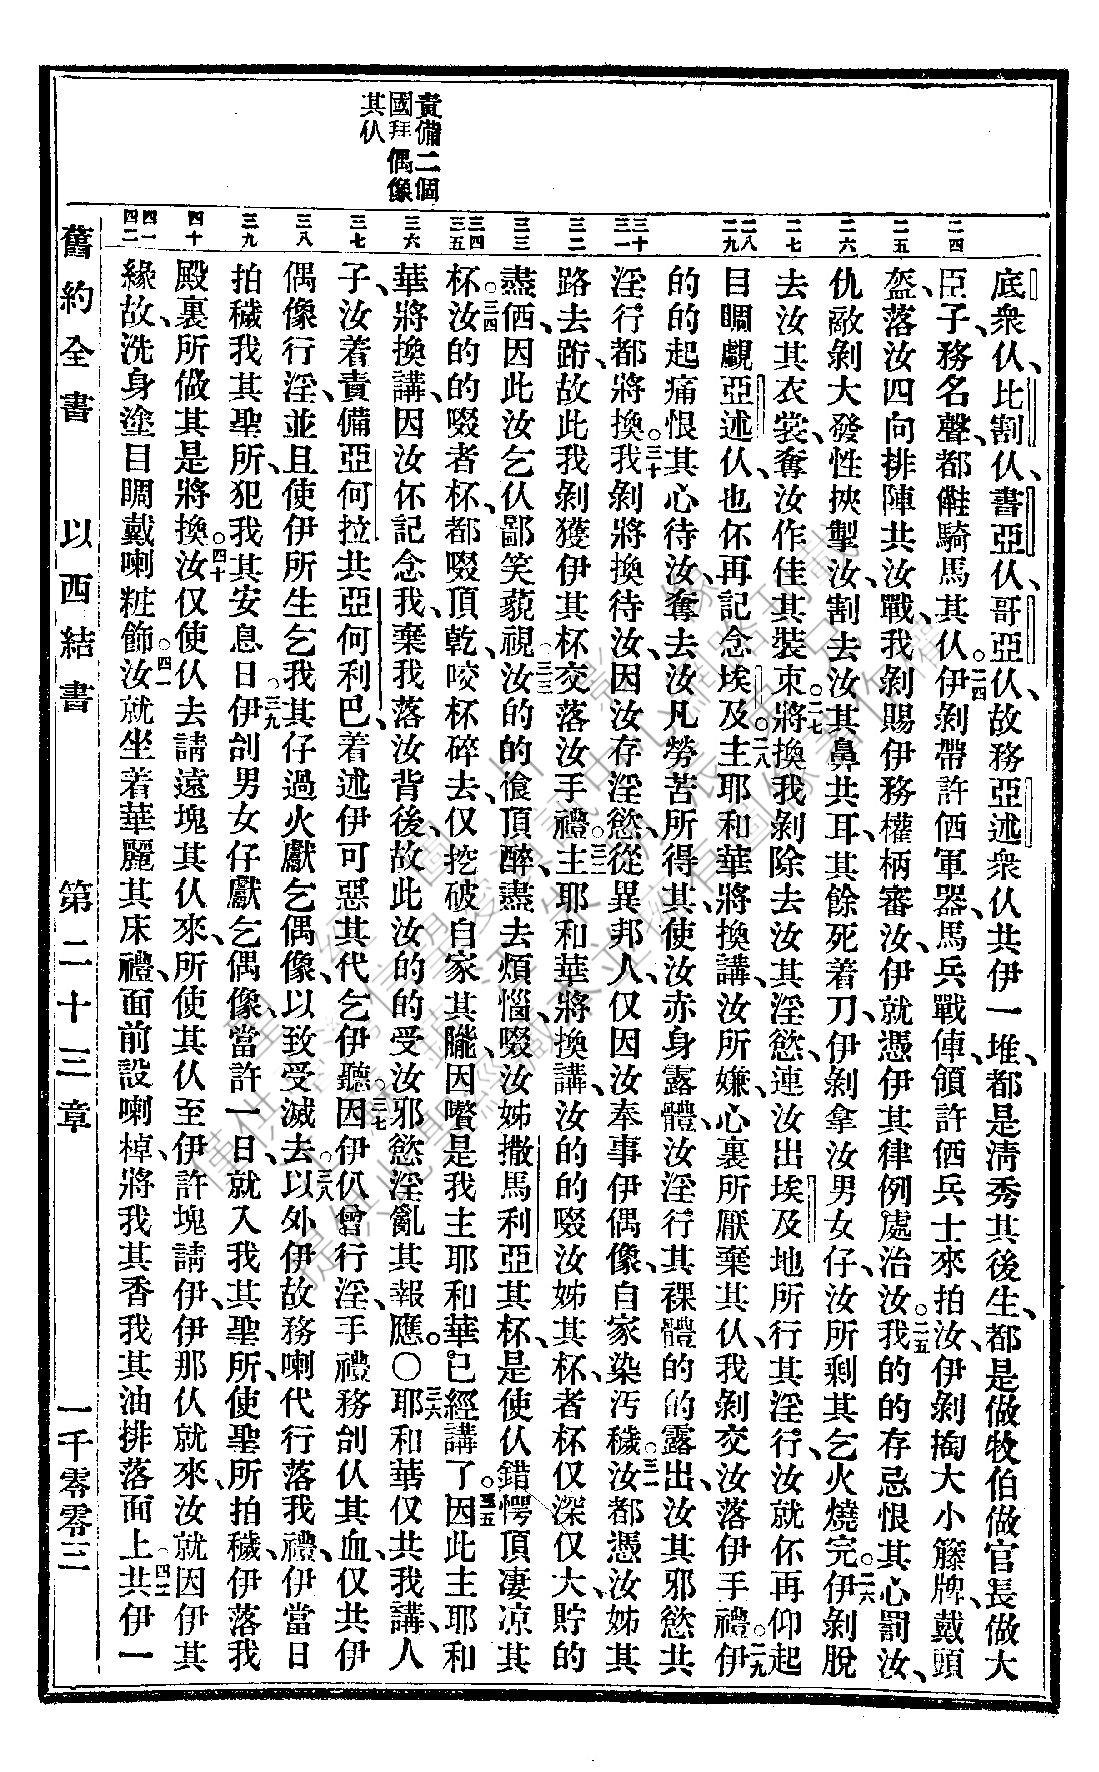 責備二個
國拜偶像
其仈
二四
二五
二六
二七
二八
二九
三十
三一
三二
三三
三四
三五
三六
三七
三八
三九
四十
四一
四二
底衆仈、比割仈、書亞仈、哥亞仈、故務亞述衆仈共伊一堆、都是清秀其後生、都是做牧伯做官長做大
臣子、務名聲、都䧹騎馬其仈。二四伊剝帶許㑚軍器、馬兵戰俥、領許㑚兵士來拍汝、伊剝掏大小籐牌、戴頭
盔、落汝四向排陣共汝戰、我剝賜伊務權柄審汝、伊就憑伊其律例處治汝。二五我的的存忌恨其心罰汝、
仇敵剝大發性挾掣汝、割去汝其鼻共耳、其餘死着刀、伊剝拿汝男女仔、汝所剩其乞火燒完。二六伊剝脫
去汝其衣裳、奪汝作佳其裝束。二七將換我剝除去汝其淫慾、連汝出埃及地所行其淫行、汝就伓再仰起
目睭覷亞述仈、也伓再記念埃及。二八主耶和華將換講、汝所嫌、心裏所厭棄其仈、我剝交汝落伊手禮。二九伊
的的起痛恨其心待汝、奪去汝凡勞苦所得其、使汝赤身露體、汝淫行其裸體的的露出、汝其邪慾共
淫行都將換。三十我剝將換待汝、因汝存淫慾從異邦人、仅因汝奉事伊偶像、自家染汚穢。三一汝都憑汝姊其
路去跡、故此我剝獲伊其杯交落汝手禮。三二主耶和華將換講、汝的的啜汝姊其杯、者杯仅深仅大、貯的
盡㑚、因此汝乞仈鄙笑藐視。三三汝的的飡頂醉、盡去煩惱、啜汝姊撒馬利亞其杯、是使仈錯愕頂凄凉其
杯。三四汝的的啜者杯、都啜頂乾、咬杯碎去、仅挖破自家其𦢓、因嚽是我主耶和華已經講了。三五因此主耶和
華將換講、因汝伓記念我、棄我落汝背後、故此汝的的受汝邪慾淫亂其報應。〇三六耶和華仅共我講、人
子、汝着責備亞何拉共亞何利巴、着述伊可惡其代乞伊聽。三七因伊仈曾行淫、手禮務刣仈其血、仅共伊
偶像行淫、並且使伊所生乞我其仔過火獻乞偶像、以致受滅去。三八以外伊故務喇代行落我禮、伊當日
拍穢我其聖所、犯我其安息日。三九伊刣男女仔獻乞偶像、當許一日、就入我其聖所、使聖所拍穢、伊落我
殿裏所做其是將換。四十汝仅使仈去請遠塊其仈來、所使其仈至伊許塊請伊、伊那仈就來、汝就因伊其
緣故、洗身塗目睭戴喇粧飾。四一汝就坐着華麗其床禮、面前設喇棹、將我其香我其油排落面上。四二共伊一
舊約全書　以西結書　第二十三章　一千零零三